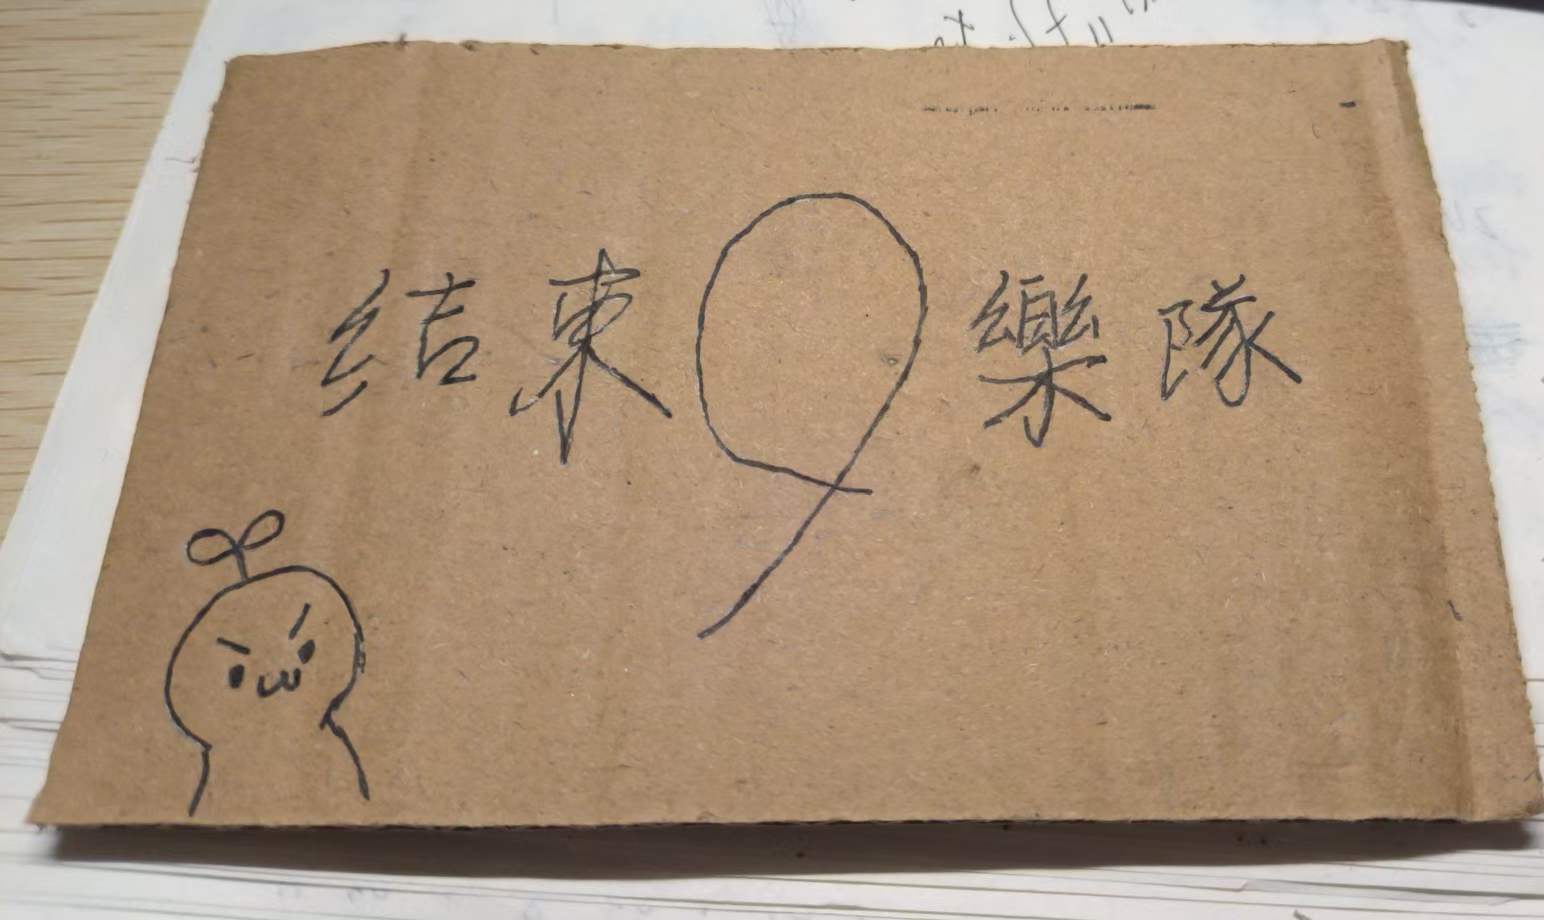 结束樂隊